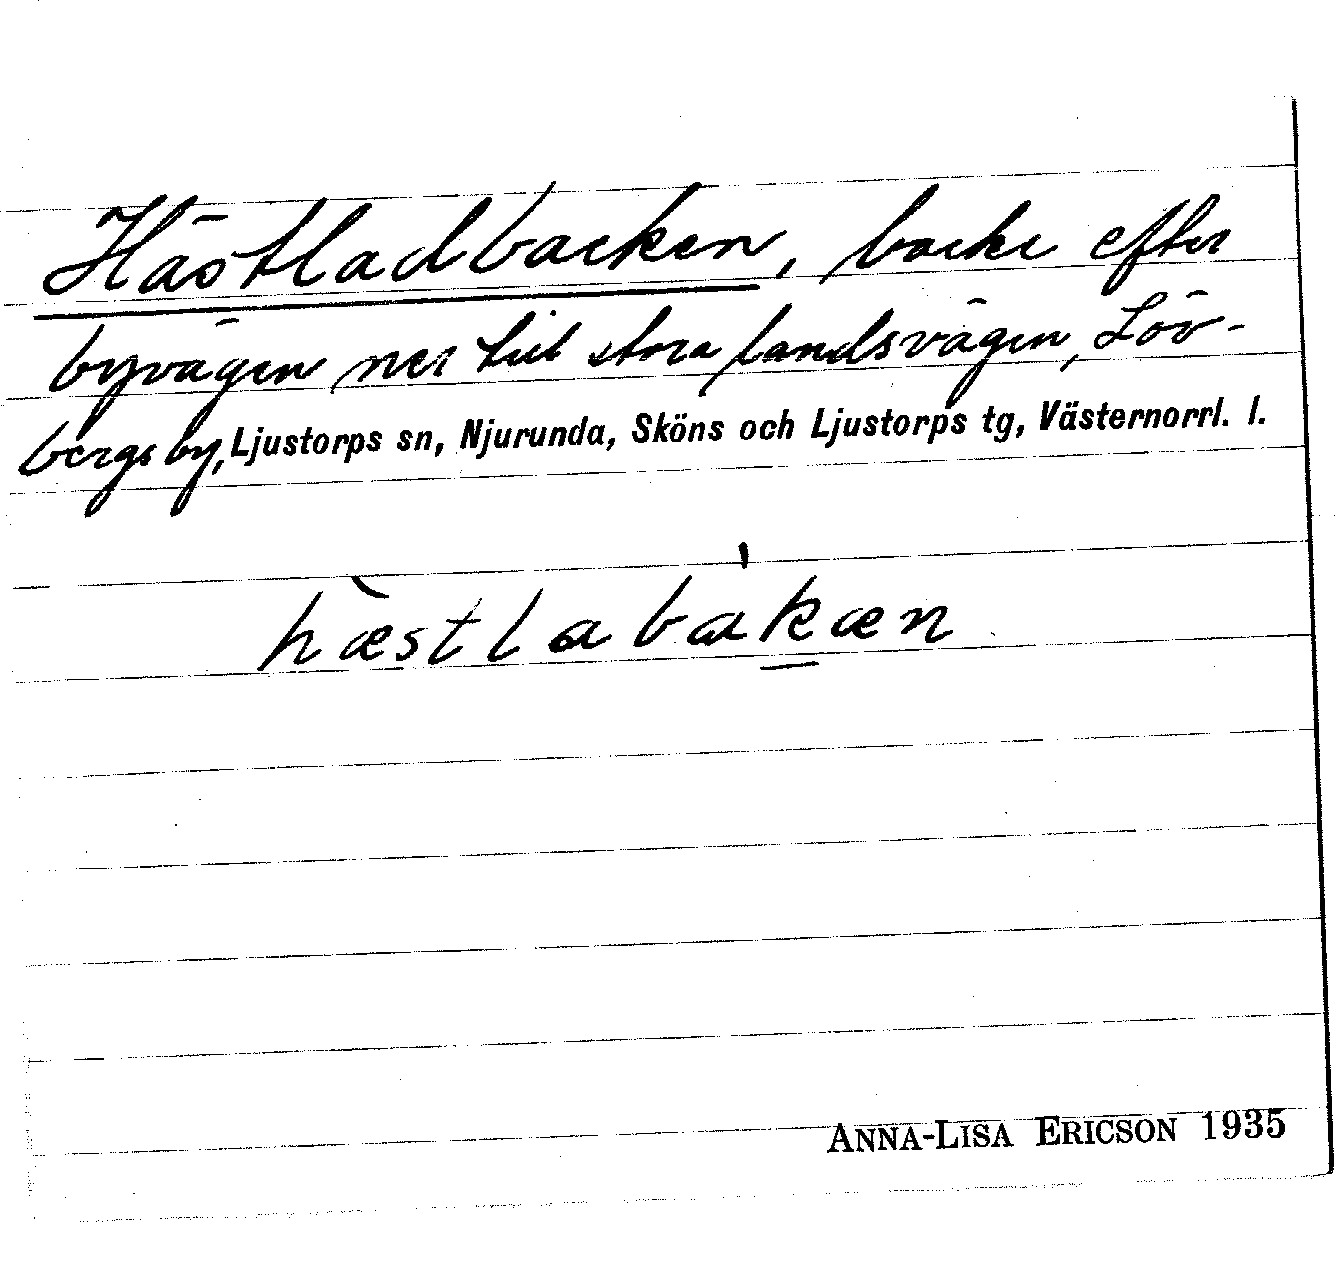 Hästladbacken, backe efter
byvägen ner till stora landsvägen, Löv-
bergs by, Ljustorps sn, Njurunda, Sköns och Ljustorps tg, Västernorrl. l.
hæ̀stlabák̲æn
ANNA-LISA ERICSON 1935